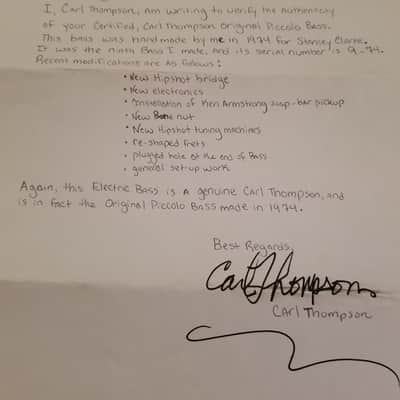 I, Carl Thompson, am writing to verify the authenticity
of your Certified, Carl Thompson Original Piccolo Bass.
This bass was handmade by me in 1974 for Stanley Clarke.
It was the ninth Bass I made, and its serial number is 9-74.
Recent modifications are as follows:
• New Hipshot bridge
• New electronics
• Installation of Ken Armstrong soap-bar pickup
• New nut
• New Hipshot tuning machines
• re-shaped frets
• plugged hole at the end of Bass
• general set-up work
Again, this Electric Bass is a genuine Carl Thompson, and
is in fact the Original Piccolo Bass made in 1974.
Best Regards,
Carl Thompson
Carl Thompson